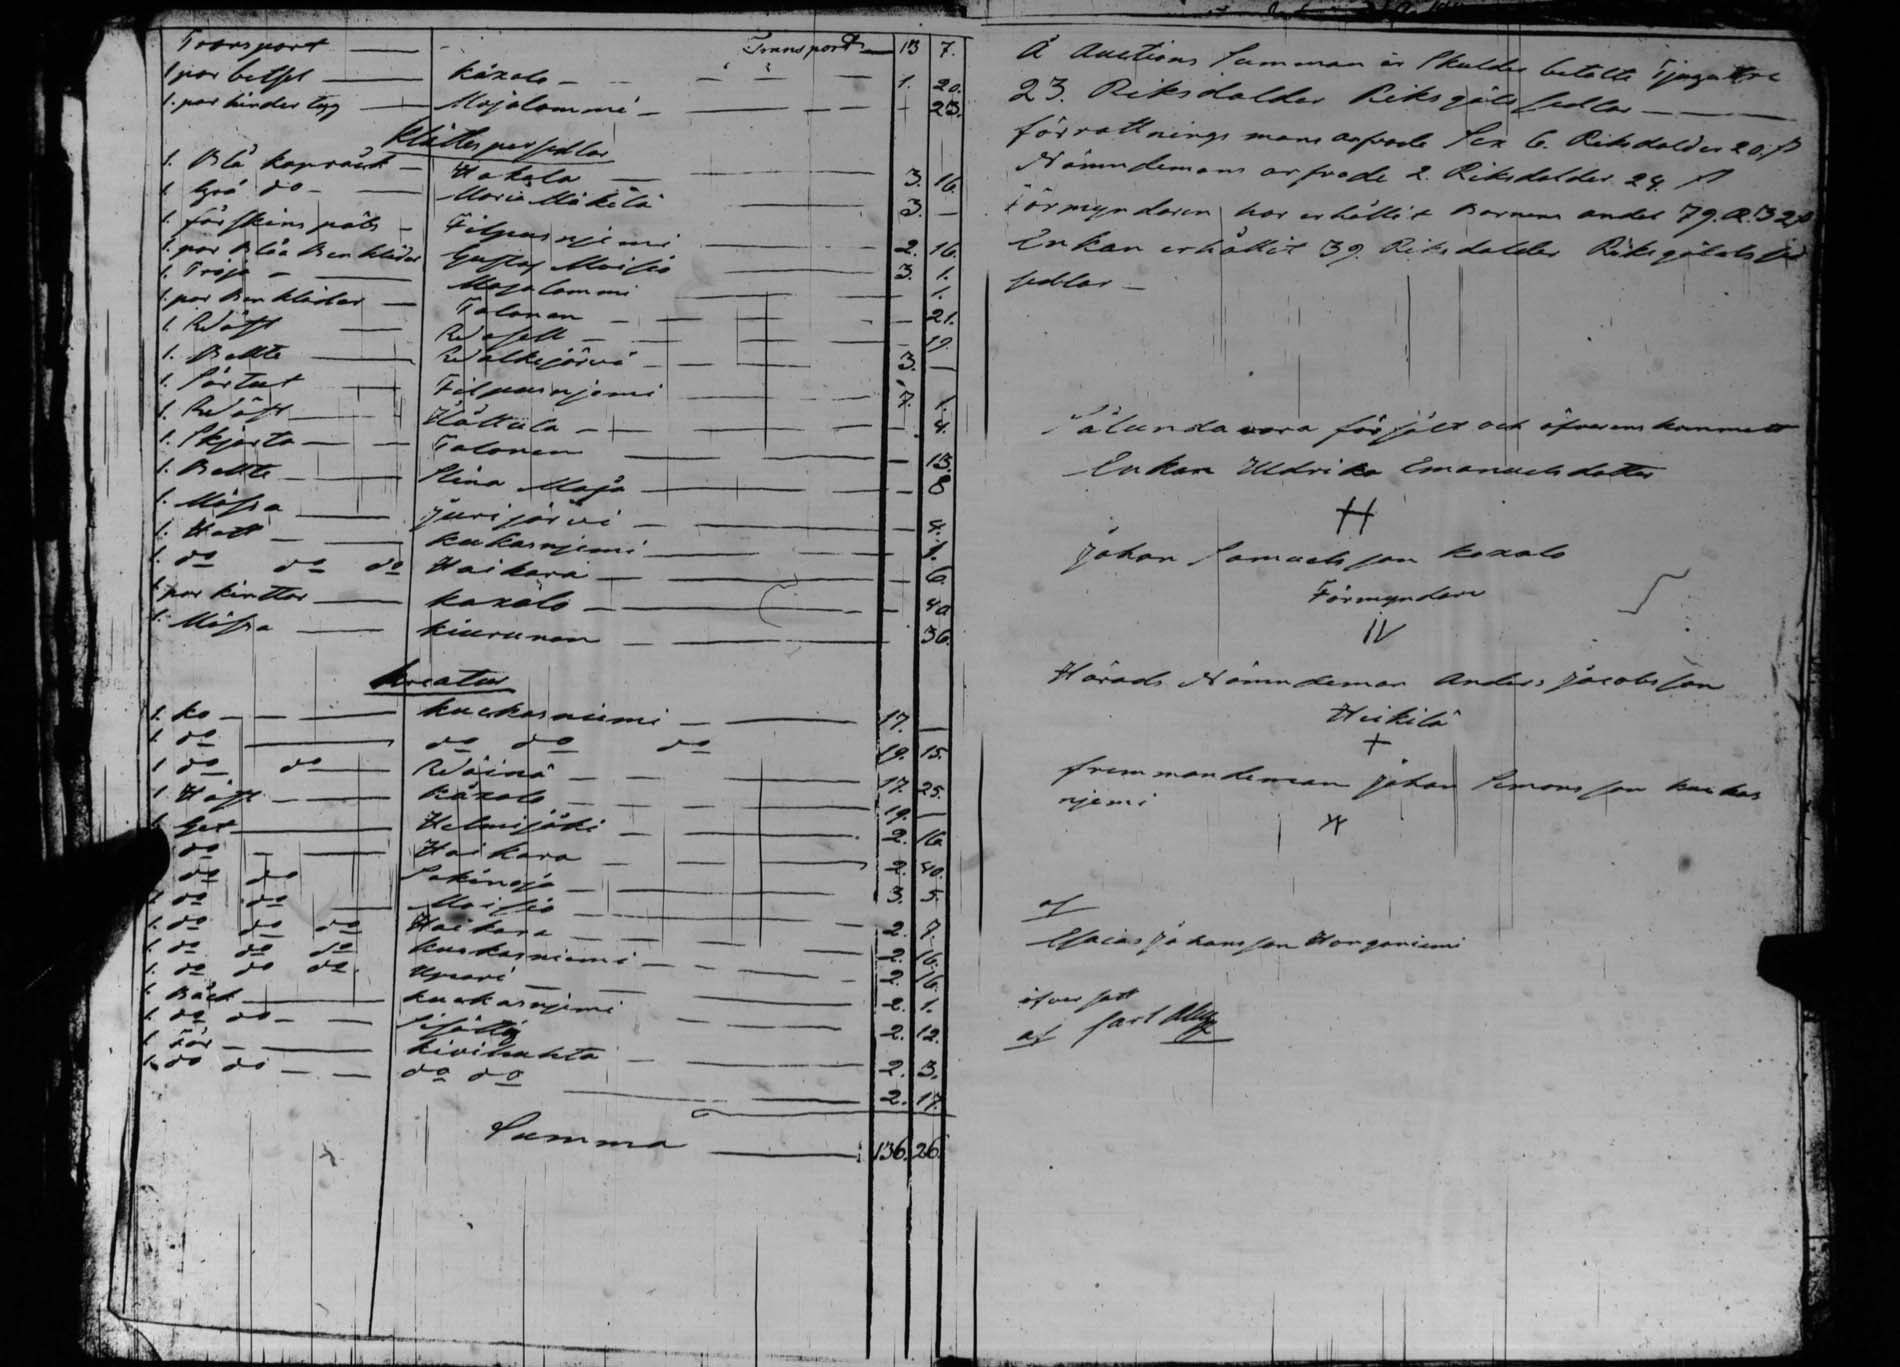 Transport — Transport — 13 7.
1 par betsel — Käxalo — 1. 20.
1. par hinder tyg — Majalammi — 23.
Klädes persedlar
1. Blå kapråck — Hakala — 3. 16.
1. Grå do — Maria Mäkilä — 3. —
1. fårskins päls — Filpusnjemi — 2. 16.
1. par Blåa Benkläder Gustaf Moisio — 3. 1.
1. Tröja — Majalammi — 1.
1. par Benkläder — Talonen — 21.
1. Wäst — 19.
1. Bellte — Walkejärvi — 3. —
1. Sörtut — Filpusnjemi — 7. 1.
1. Wäst — Hättula — 4.
1. Skjorta — Talonen — 13.
1. Bellte — Stina Maja — 8
1. Mössa — Jurijärvi — 4.
1. Hatt — Kukasnjemi — 1.
1. do do do Haikara — 6.
1 par kinttar — Kaxalo — 40
1. Mössa — Kiurunen — 36.
Kreatur
1. Ko — Kuckasniemi — 17. —
1. do — do do do 19. 15.
1 do do — Wäinä — 17. 25.
1 Häst — Käxalo — 19. —
1. Get — Helmijäki — 2. 16
do — Haikara — 2. 40.
do do Sakinoja — 3. 5.
1 do do — Moisio — 2. 7.
1. do do do Haikara — 2. 16.
1. do do do Kuckasniemi — 2. 16.
1. do do do — 2. 1.
1. Båck — Kuckasnjemi — 2. 12.
1. do do —
1 Får — Kivikahta — 2. 3.
1. do do — do do — 2. 17.
Summa — 136. 26.
Å Auctions Summan är Skulder betalte Tjugutre
23. Riksdalder Riksgäls sedlar —
förrattnings mans arfvode Sex 6. Riksdalder 20. s
Nämndemans arfvode 2. Riksdalder. 24. s
Förmyndaren har erhållit Barnens andel 79. R. 32 s
Enkan erhållit 39. Riksdalder Riksgälds
sedlar —
Sålunda vara försålt och öfverens kommett
Enkan Uldrika Emanuelsdotter
H
Johan Samuelsson Kaxalo
Förmyndare
IV
Härads Nämndeman Anders Jacobsson
Heikilä
+
fremmandeman Johan Simonsson Kuckas
njemi
af
Esaias Johansson Honganiemi
öfversatt
af Carl